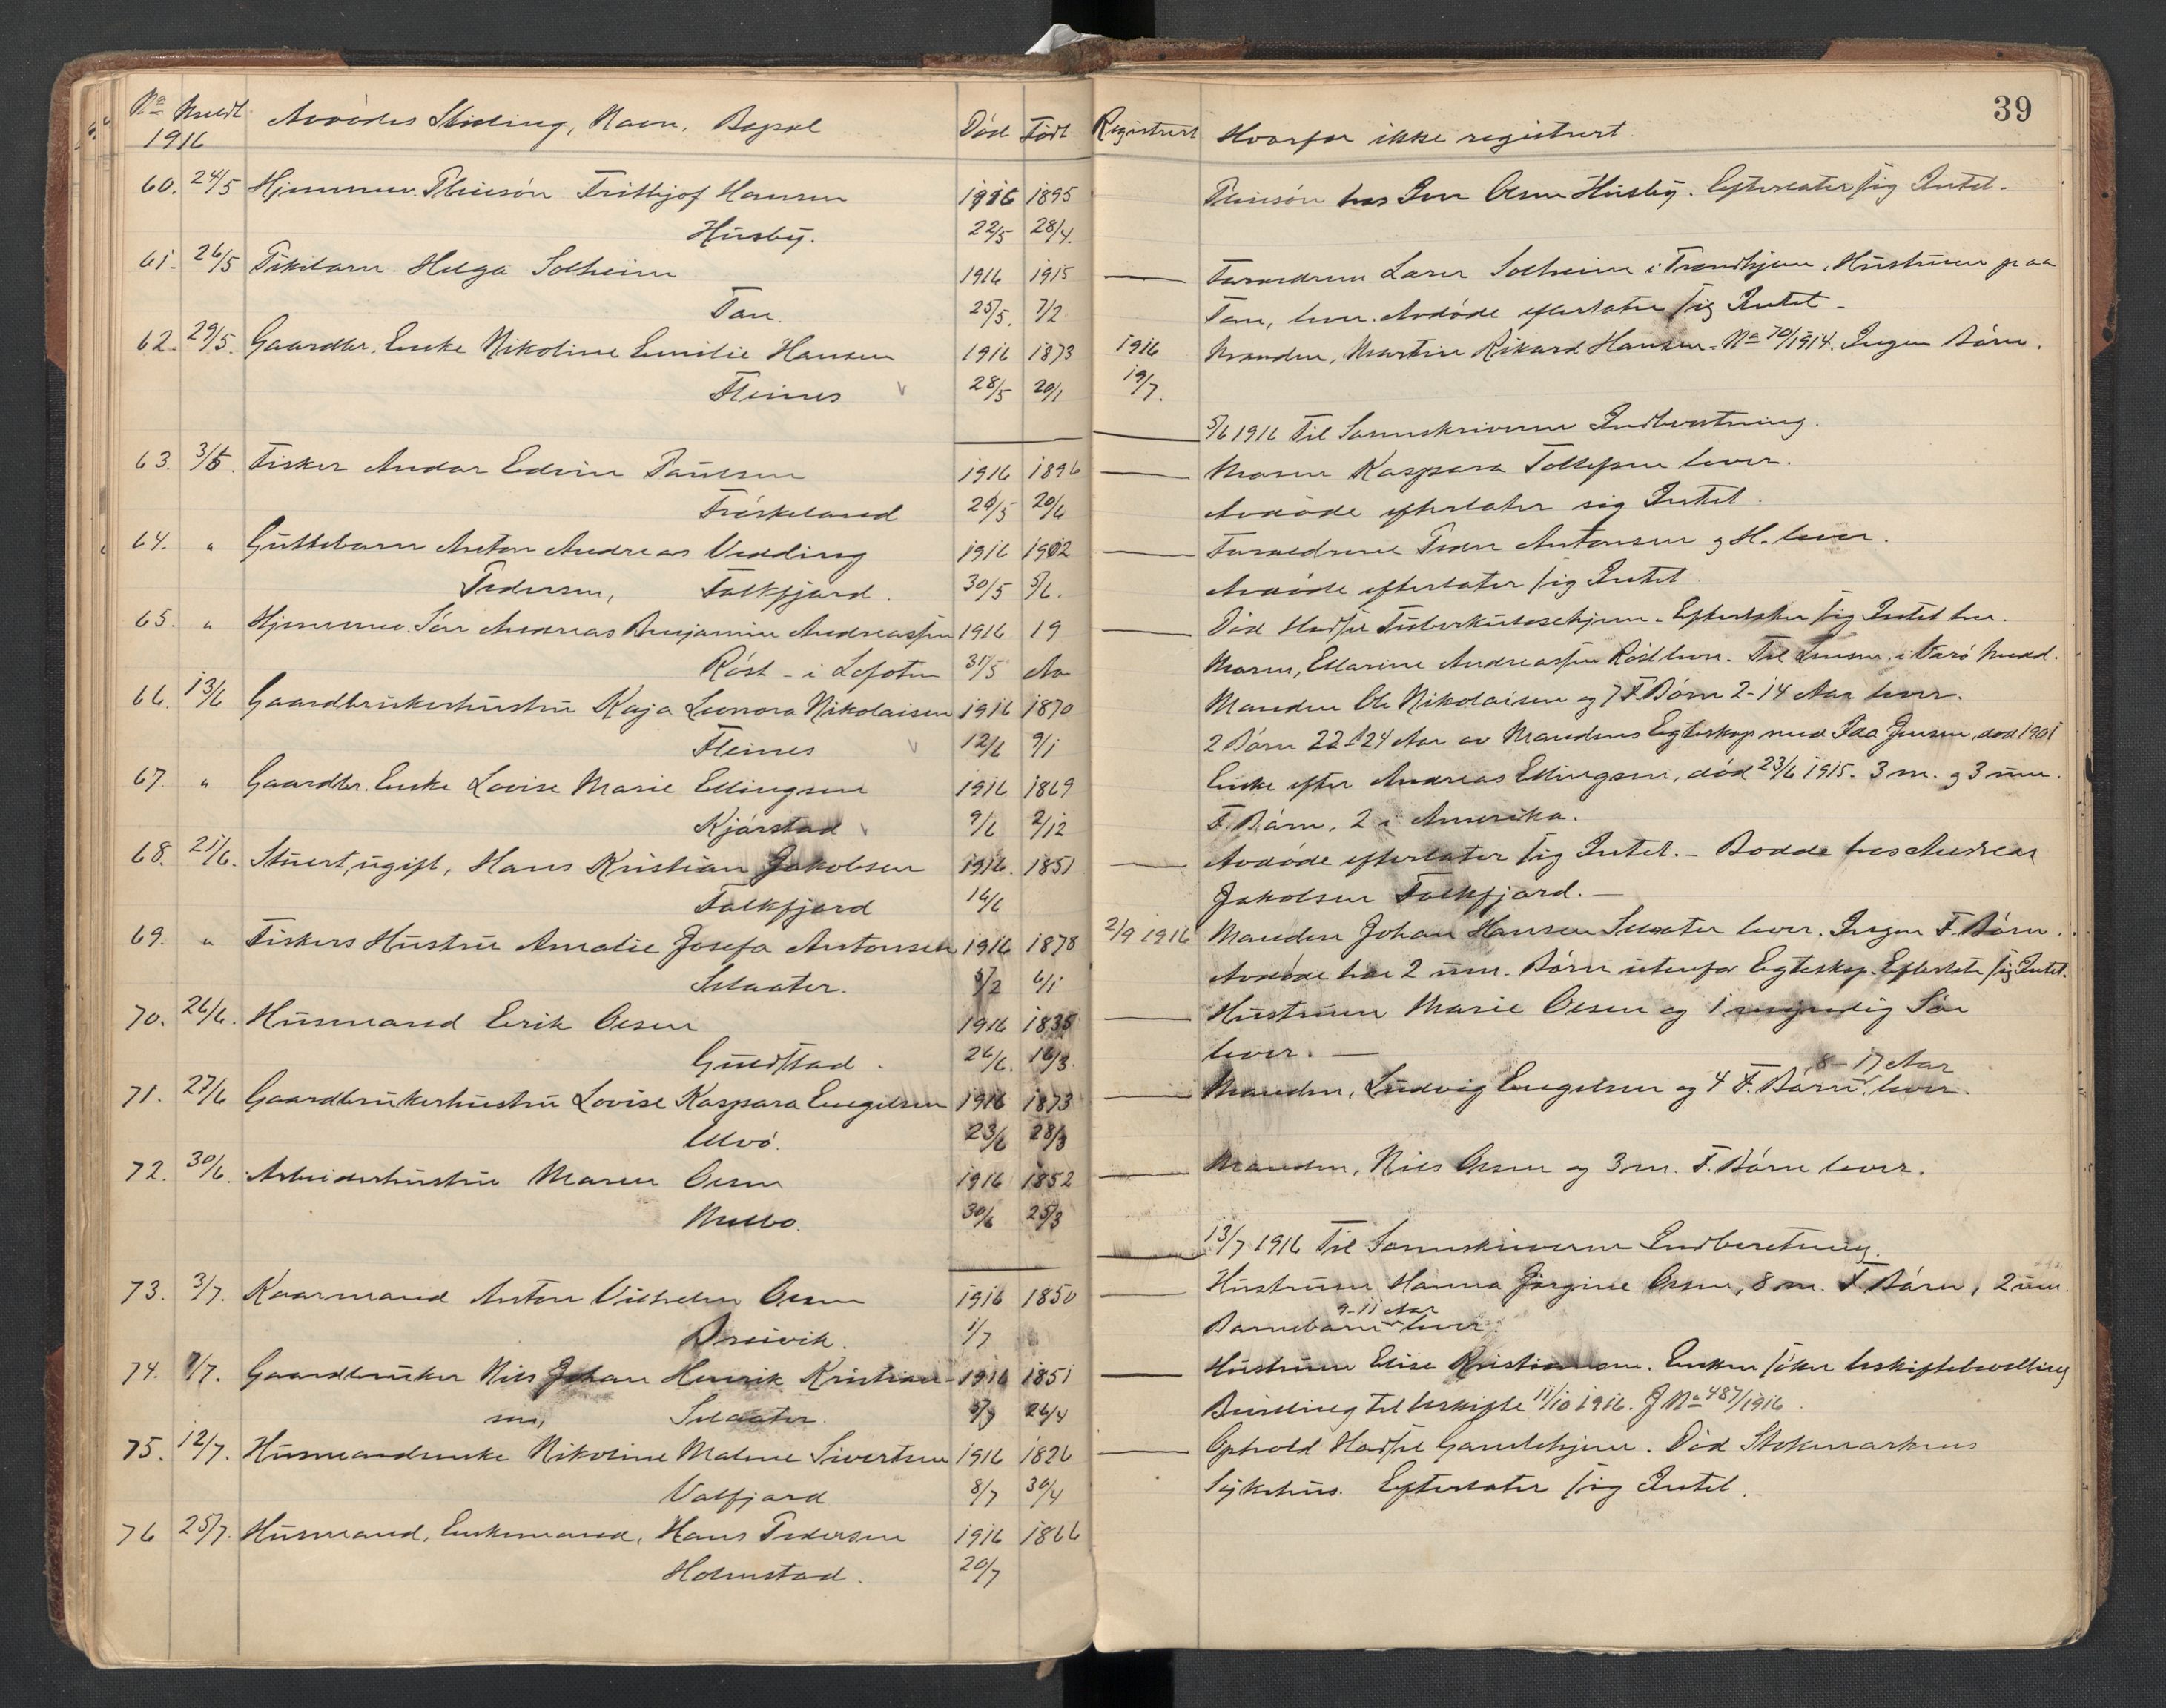 39
No Meldt Avdødes Stilling, Navn, Bopæl Død Født Registrert Hvorfor ikke registrert.
1916
60. 24/5 Hjemmev. Pleiesøn Frithjof Hansen 1916 1895 Pleiesøn hos Olsen Husby. Efterlater sig Intet.
Husby. 22/5 28/4.
61. 26/5 Pikebarn Helga Solheim 1916 1915 Forældrene Solheim i Trondhjem, Hustruen paa
25/5. 7/2 lever. Avdøde efterlater sig Intet
62. 29/5. Gaardbr. Enke Nikoline Emilie Hansen 1916 1873 1916 Manden, Martin Rikard Hansen No 70/1914. Ingen Børn.
Fleines 28/5 20/1 19/7.
5/6 1916 Til Sorenskriveren Indberetning.
63. 3/6. Fisker Andor Edvin Paulsen 1916 1896 Moren Kaspara Tollefsen lever.
Frøskeland 20/6 Avdøde efterlater sig Intet.
64. " Guttebarn Anton Andreas Vedding 1916 1902 Forældrene Peder Antonsen og H. lever.
Pedersen, Falkfjord. 30/5 5/6. Avdøde efterlater sig Intet
65. " Hjemmev. Søn Andreas Benjamin Andreassen 1916 19 Død Hadsel Tuberkulosehjem. Efterlater sig Intet her.
Røst - i Lofoten 31/5 Aa Moren, Ellarine Andreassen Røst lever. Til Lensm. i Værø medd.
66. 13/6 Gaardbrukerhustru Kaja Leonora Nikolaisen 1916 1870 Manden Ole Nikolaisen og 7 F. Børn 2-14 Aar lever.
Fleines 12/6 9/1 2 Børn 22 & 24 Aar av Mandens Egteskap med Ida Jensen, død 1901
67. " Gaardbr. Enke Lovise Marie Ellingsen 1916 1869 Enke efter Andreas Ellingsen, død 23/6 1915. 3 m. og 3 um.
Kjørstad 9/6 2/12 F. Børn, 2 i Amerika.
68. 21/6. Stuert, ugift, Hans Kristian Jakobsen 1916. 1851 Avdøde efterlater sig Intet. - Bodde hos Andreas
Falkfjord 14/6 Jakobsen Falkfjord. -
69. " Fiskers Hustru Amalie Josefa Antonsen 1916 1878 2/9 1916 Manden Johan Hansen lever. Ingen F. Børn.
6/1 Avdøde har 2 um. Børn utenfor Egteskap. Efterlater sig Intet.
70. 26/6. Husmand Erik Olsen 1916 1835 Hustruen Marie Olsen og 1 myndig Søn
Guldstad. 26/6. 16/3. lever. -
8-17 Aar
71. 27/6 Gaardbrukerhustru Lovise Kaspara Engelsen 1916 1873 Manden, Ludvig Engelsen og 4 F. Børn lever.
Ulvø. 23/6 28/3
72. 30/6. Arbeiderhustru Maren Olsen 1916 1852 Manden, Nils Olsen og 3 m. F. Børn lever.
Melbo. 30/6 25/3
13/7 1916 Til Sorenskriveren Indberetning.
73. 3/7. Kaarmand Anton Vilhelm Olsen 1916 1850 Hustruen Hanna Jørgine Olsen, 8 m. F. Børn, 2 um.
9-11 Aar
1/7 Barnebarn lever.
74. 7/7. Gaardbruker Nils Johan Henrik Kristian- 1916 1851 Hustruen Elise Kristiansen. Enken søker Uskiftebevilling
sen, 26/4 Bevilling til Uskifte 11/10 1916. J No 487/1916.
75. 12/7. Husmandsenke Nikoline Malene Sivertsen 1916 1826 Ophold Hadsel Gamlehjem. Død Stokmarknes
Valfjord 8/7 30/4 Sykehus. Efterlater sig Intet.
76 25/7. Husmand, Enkemand, Hans Pedersen 1916 1866
Holmstad. 20/7